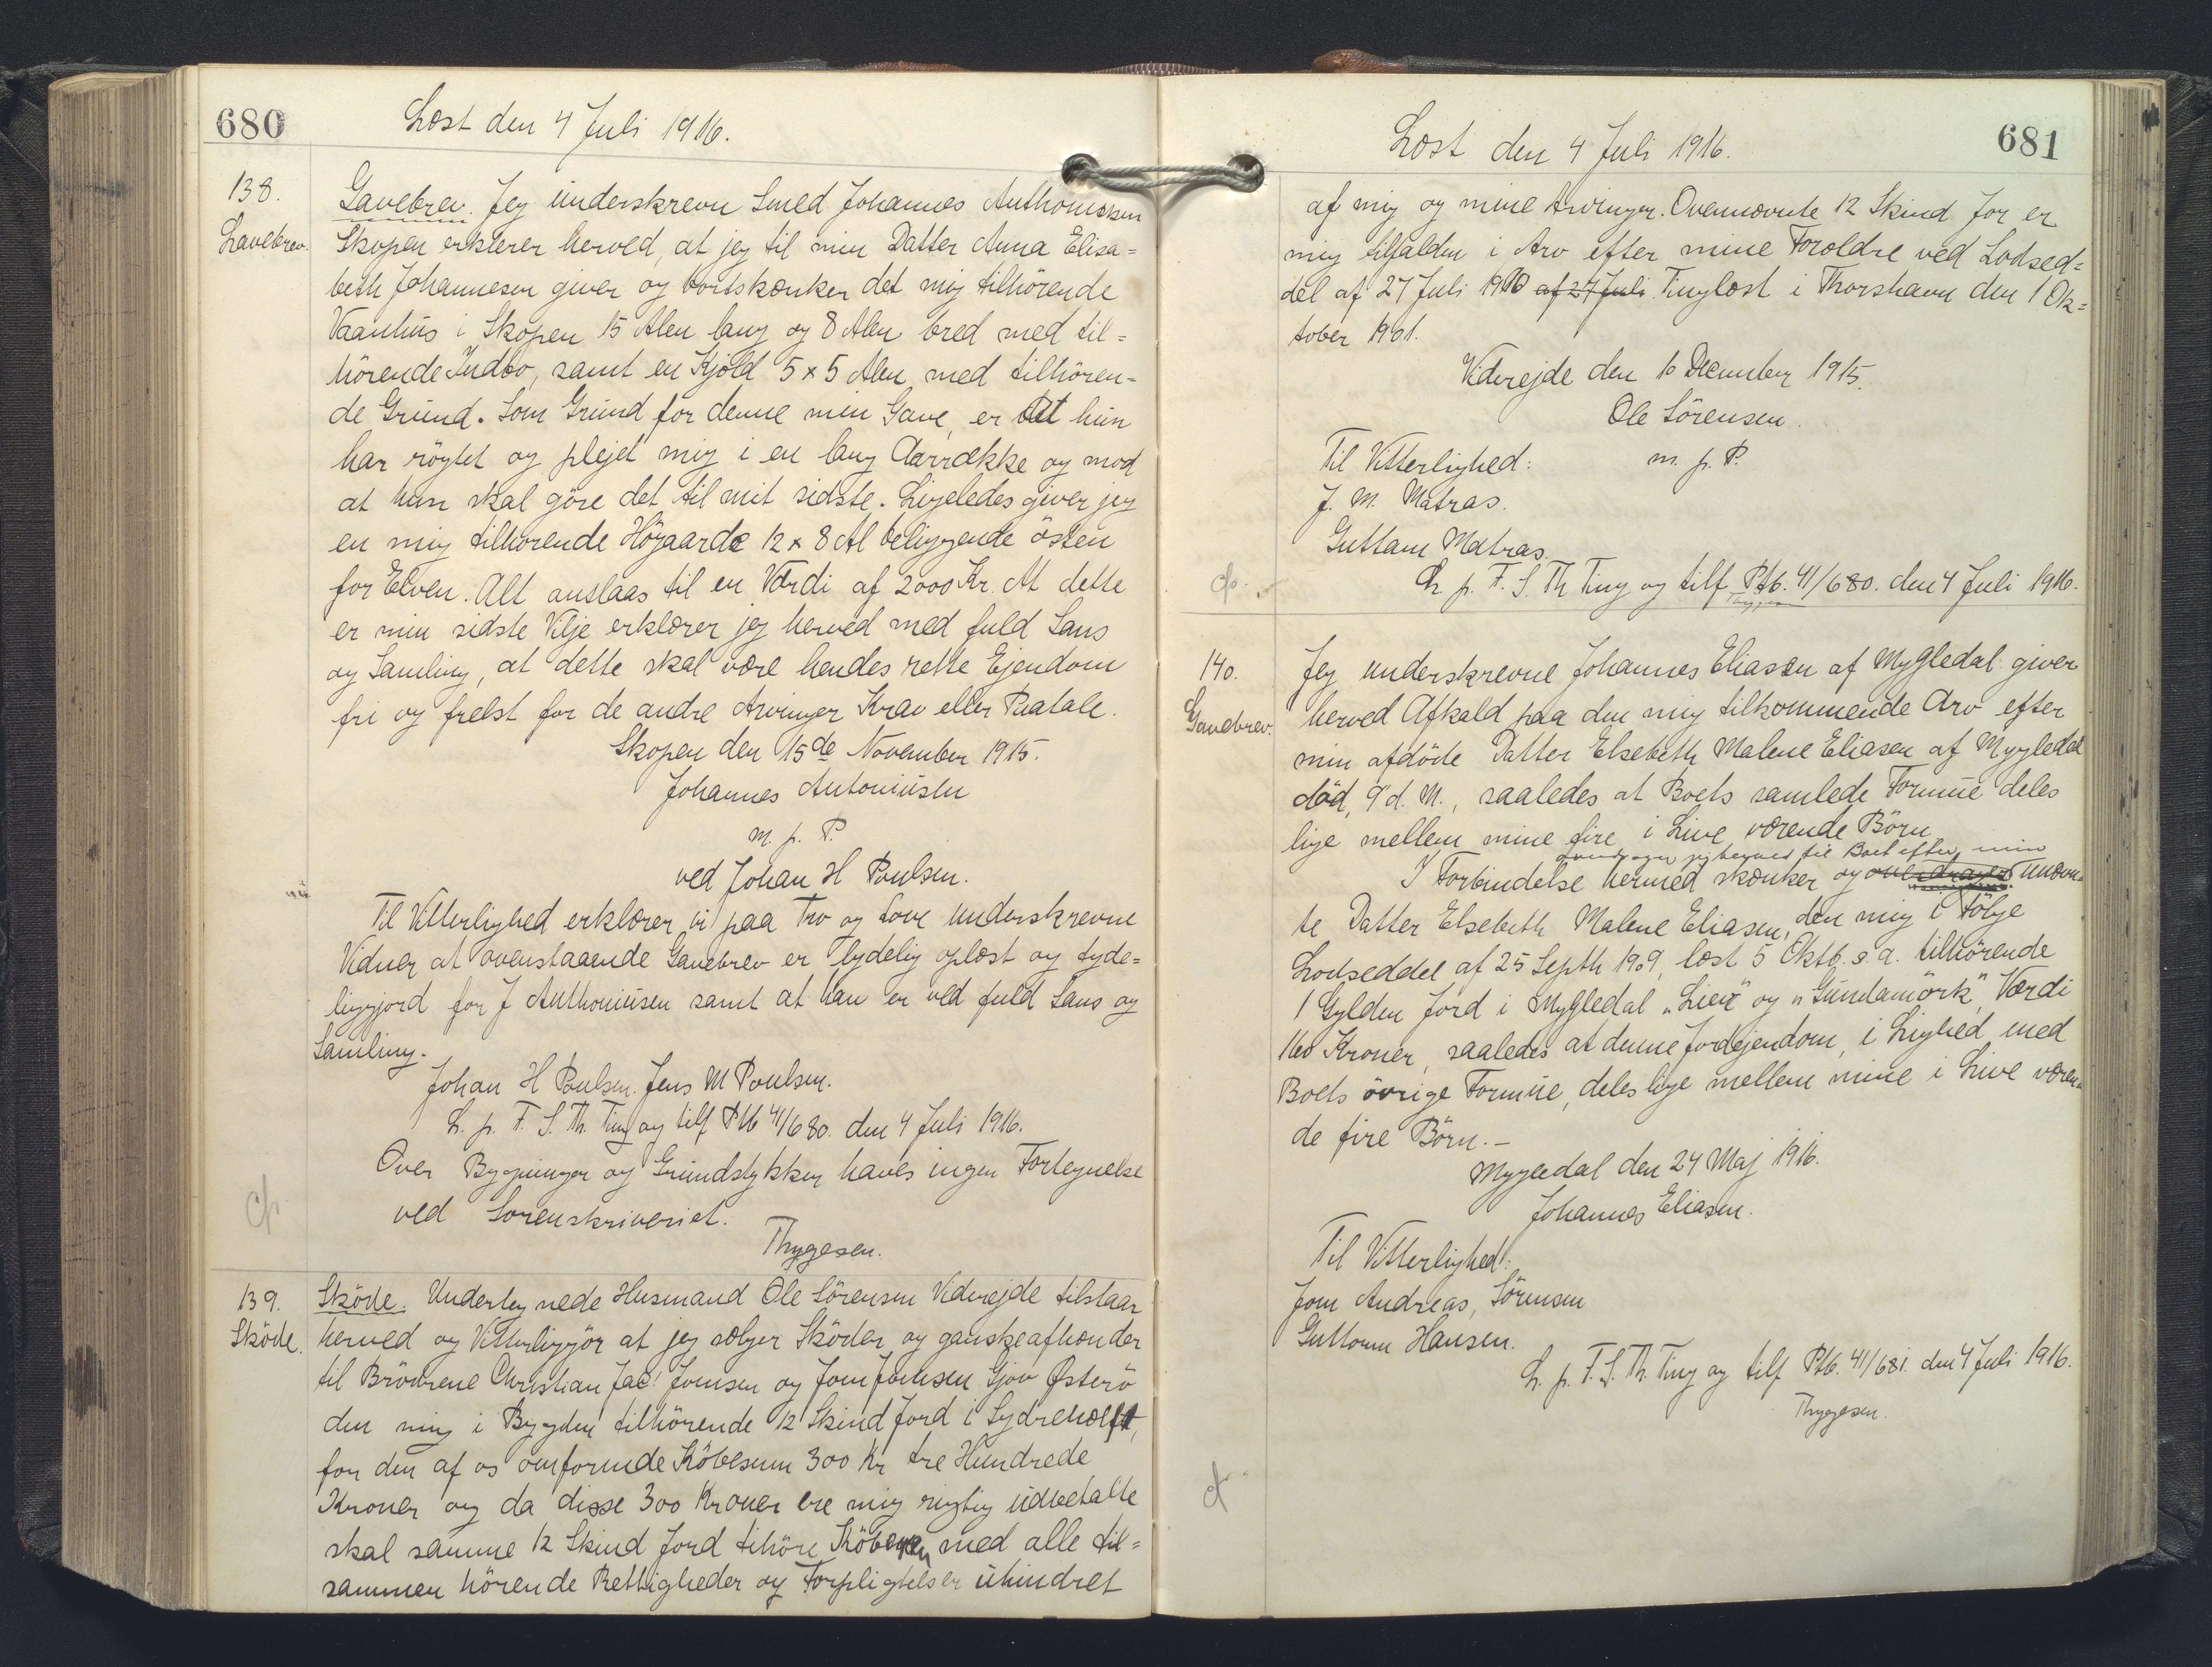 680
Læst den 4 Juli 1916.
138.
Gavebrev.
Gavebrev. Jeg underskrevn Smed Johannes Anthoniusen
Skopen erklærer herved, at jeg til min Datter Anna Elisa=
beth Johannesen giver og bortskænker det mig tilhörende
Vaanhus i Skopen 15 Alen lang og 8 Alen bred med til=
hörende Indbo, samt en Kjöld 5 x 5 Alen med tilhören=
de Grund. Som Grund for denne min Gave, er at hun
har rögtet og plejet mig i en lang Aarrække og mod
at hun skal göre det til mit sidste. Ligeledes giver jeg
en mig tilhörende Högaarde 12 x 8 Al beliggende östen
for Elven. Alt anslaas til en Værdi af 2000 Kr. At dette
er min sidste Vilje erklærer jeg herved med fuld Sans
og Samling, at dette skal være hendes rette Ejendom
fri og frelst for de andre Arvinger Krav eller Paatale.
Skopen den 15de November 1915.
Johannes Antoniusen
m. p. P.
ved Johan H Poulsen.
Til Vitterlighed erklærer vi paa Tro og Love underskrevne
Vidner at ovenstaaende Gavebrev er lydelig oplæst og tyde=
liggjord for J Anthoniusen samt at han er ved fuld Sans og
Samling.
Johan H Poulsen. Jens M Poulsen.
L. p. F. S. Th. Ting og tilf Ptb 41/680. den 4 Juli 1916.
Over Bygninger og Grundstykker haves ingen Fortegnelse
ved Sorenskriveriet.
Thygesen.
139.
Sköde.
Sköde. Undertegnede Husmand Ole Sörensen Viderejde tilstaar
herved og Vitterliggjör at jeg sælger Sköder og ganske afhænder
til Brödrene Christian Jac! Joensen og Joen Joensen Gjov Østerö
den mig i Bygden tilhörende 12 Skind Jord i Sydrehælft,
for den af os omforende Köbesum 300 Kr tre Hundrede
Kroner og da disse 300 Kroner ere mig rigtig udbetalte
skal samme 12 Skind Jord tihöre Köberen med alle til=
sammen hörende Rettigheder og Forpligtelser uhindret
681
Læst den 4 Juli 1916.
af mig og mine Arvinger. Ovennævnte 12 Skind Jor er
mig tilfalden i Arv efter mine Foroldre ved Lodsed=
del af 27 Juli 1900 af 27 Juli Tinglæst i Thorshavn den 1 Ok=
tober 1901.
Viderejde den 10 December 1915.
Ole Sörensen.
Til Vitterlighed: m. p. P.
J. M. Matras.
Guttorm Matras.
L. p. F. S. Th Ting og tilf Ptb. 41/680. den 4 Juli 1916.
140.
Gavebrev.
Jeg underskrevne Johannes Eliasen af Mygledal giver
herved Afkald paa den mig tilkommende Arv efter
min afdöde Datter Elsebeth Malene Eliasen af Mygledal
död, 9' d. M., saaledes at Boets samlede Formue deles
lige mellem mine fire i Live værende Börn.
overdrager jeg herved til Boet efter min
I Forbindelse hermed skænker og overdrages nævn=
te Datter Elsebeth Malene Eliasen, den mig i Fölge
Lodseddel af 25 Septb 1909, læst 5 Oktb. s. a. tilhörende
1 Gylden Jord i Mygledal „Liex" og „Gundamörk", Værdi
160 Kroner, saaledes at denne Jordejendom, i Lighed med
Boets övrige Formue, deles lige mellem mine i Live væren=
de fire Börn.-
Mygledal den 24 Maj 1916.
Johannes Eliasen.
Til Vitterlighed:
Joen Andreas, Sörensen
Guttorm Hansen.
L. p. F. S. Th. Ting og tilf Ptb. 41/681. den 4 Juli 1916.
Thygesen.